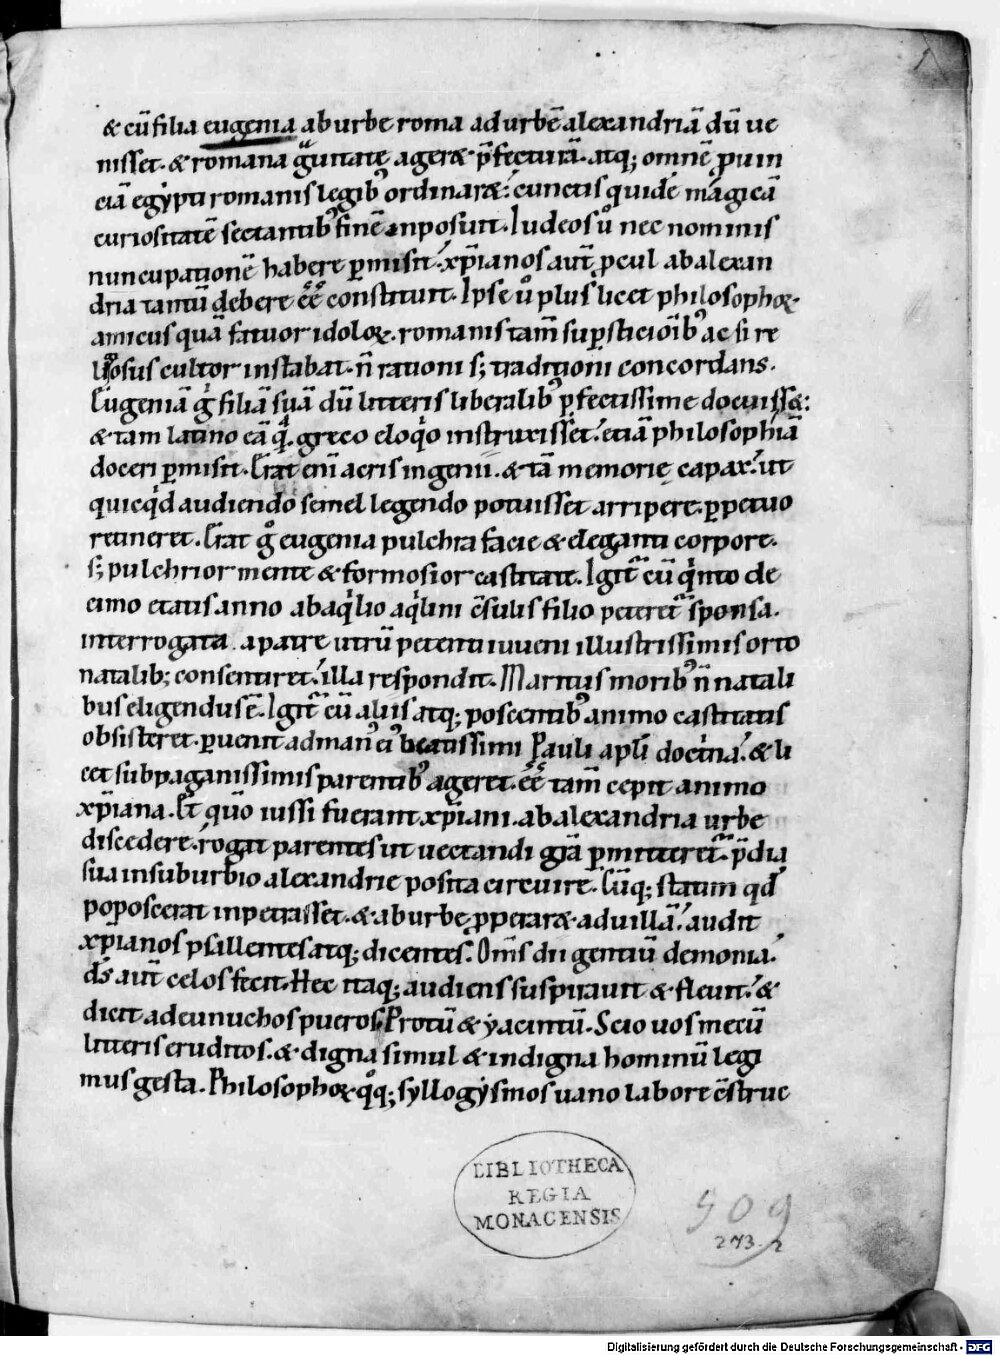 & cū filia eugenia ab urbe roma ad urbē alexandriā dū ue
nisset. & romana grauitate ager& p̄fecturā. atq; omnē prouin
ciā egẏpti romanis legib' ordinar&. cunctis quidē magicā
curiositatē sectantib' finē inposuit. Iudeos ů nec nominis
nuncupationē habere pmisit. xp̄ianos aut̄ pcul ab alexan
dria tantū debere ēē constituit. Ipse ů plus licet philosophoꝝ
amicus quā fatuor idoloꝝ. romanis tam̄ supsticioīb' ac si re
ligiosus cultor instabat. n̄ rationi s; traditioni concordans.
Eugeniā g̊ filiā suā dū litteris liberalib' pfectissime docuiss&.
& tam latino eā qͣ greco eloqͥo instruxisset. etiā philosophiā
doceri pmisit. Erat eni acris ingenii. & tā memorię capax. ut
quicqͥd audiendo semel legendo potuisset arripere. ppetuo
retineret. Erat g̊ eugenia pulchra facie & eleganti corpore.
s; pulchrior mente & formosior castitate. Igit̄ cū qͥnto de
cimo etatis anno ab aqͥlio aqͥlini c̄sulis filio peteret̄ sponsa.
interrogata a patre utrū petenti iuueni illustrissimis orto
natalib; consentiret. illa respondit. Maritus morib' n̄ natali
bus eligendus ē. Igit̄ cū aliis atq; poscentib' animo castitatis
obsisteret. puenit ad man' ei' beatissimi Pauli apłi doctͥna. & li
cet sub paganissimis parentib' ageret. ēē tam̄ cepit animo
xp̄iana. Et qm̄o iussi fuerant xp̄iani. ab alexandria urbe
discedere. rogat parentes ut uectandi gr̄a pmitteret̄. p̄dia
sua in suburbio alexandrie posita circuire. Cūq; statim qđ
poposcerat inpetrasset. & ab urbe pperar& ad uillā. audit
xp̄ianos psillentes atq; dicentes. Om̄s dii gentiū demonia.
dš aut̄ celos fecit. Hec itaq; audiens suspirauit & fleuit. &
dicit ad eunuchos pueros. Protū & ẏacintū. Scio uos mecū
litteris eruditos. & digna simul & indigna hominū legi
mus gesta. Philosophoꝝ qͦq; syllogẏsmos uano labore c̄struc
BIBLIOTHECA
REGIA
MONACENSIS
509
273.2
Digitalisierung gefördert durch die Deutsche Forschungsgemeinschaft - DFG